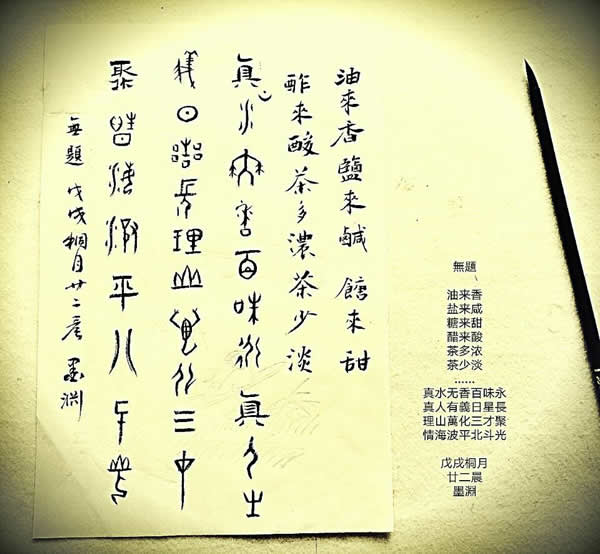 油來香鹽來鹹 餹來甜
酢來酸茶多濃茶少淡
真水無香百味永真人有
義日星長理山萬化三才
聚情海波平北斗光
無題 戊戌桐月廿二晨 墨渊
無題
油来香
盐来咸
糖来甜
醋来酸
茶多浓
茶少淡
......
真水无香百味永
真人有義日星長
理山萬化三才聚
情海波平北斗光
戊戌桐月
廿二晨
墨淵